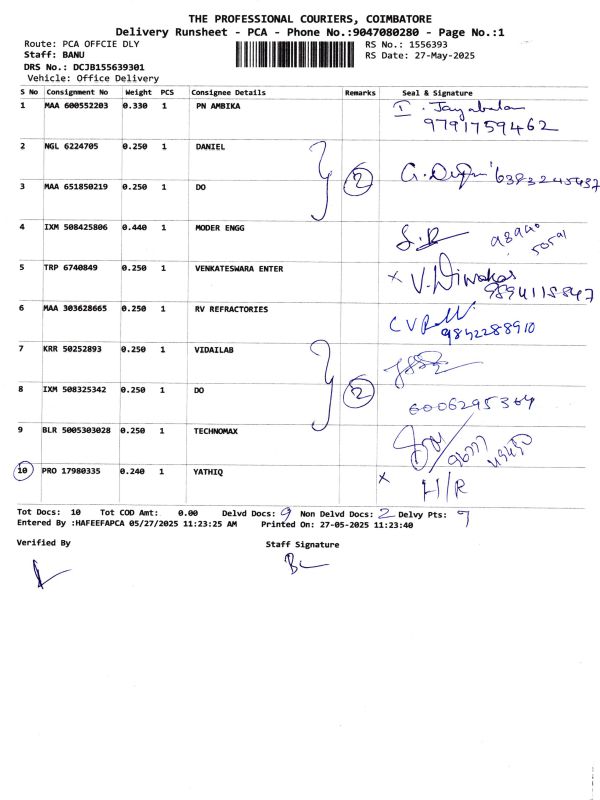 THE PROFESSIONAL COURIERS, COIMBATORE
Delivery Runsheet - PCA - Phone No.:9047080280 - Page No.:1
Route: PCA OFFCIE DLY
RS No.: 1556393
Staff: BANU
RS Date: 27-May-2025
DRS No.: DCJB155639301
Vehicle: Office Delivery
S No Consignment No Weight PCS Consignee Details Remarks Seal & Signature
1 MAA 600552203 0.330 1 PN AMBIKA I. Jayabalan
9791759462
2 NGL 6224705 0.250 1 DANIEL
2
3 MAA 651850219 0.250 1 DO
4 IXM 508425806 0.440 1 MODER ENGG
5 TRP 6740849 0.250 1 VENKATESWARA ENTER x V. Diwakar
9894115847
6 MAA 303628665 0.250 1 RV REFRACTORIES
9842288910
7 KRR 50252893 0.250 1 VIDAILAB
2
8 IXM 508325342 0.250 1 DO 6006295364
9 BLR 5005303028 0.250 1 TECHNOMAX
10 PRO 17980335 0.240 1 YATHIQ x H/R
Tot Docs: 10 Tot COD Amt: 0.00 Delvd Docs: 9 Non Delvd Docs: 2 Delvy Pts: 7
Entered By :HAFEEFAPCA 05/27/2025 11:23:25 AM Printed On: 27-05-2025 11:23:40
Verified By
Staff Signature